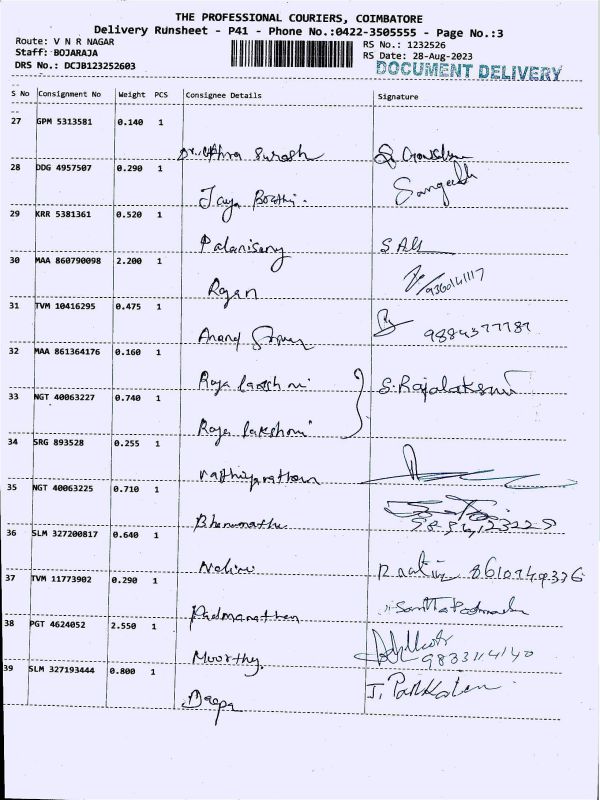 THE PROFESSIONAL COURIERS, COIMBATORE
Delivery Runsheet - P41 - Phone No.:0422-3505555 - Page No.:3
Route: V N R NAGAR
RS No.: 1232526
Staff: BOJARAJA
RS Date: 28-Aug-2023
DRS No.: DCJB123252603
DOCUMENT DELIVERY
S No Consignment No Weight PCS Consignee Details Signature
27 GPM 5313581 0.140 1
Suresh
28 DDG 4957507 0.290 1
Jaya Sangeeth
29 KRR 5381361 0.520 1
Palanisamy
30 MAA 860790098 2.200 1
Rajan 9360141117
31 TVM 10416295 0.475 1
Anand
32 MAA 861364176 0.160 1
Raja S. Rajalaksmi
33 NGT 40063227 0.740 1
Raja lakshmi
34 SRG 893528 0.255 1
35 NGT 40063225 0.710 1
36 SLM 327200817 0.640 1
Nalini 8610749376
37 TVM 11773902 0.290 1
Padmanathan
38 PGT 4624052 2.550 1
Moorthy
39 SLM 327193444 0.800 1
Deepa